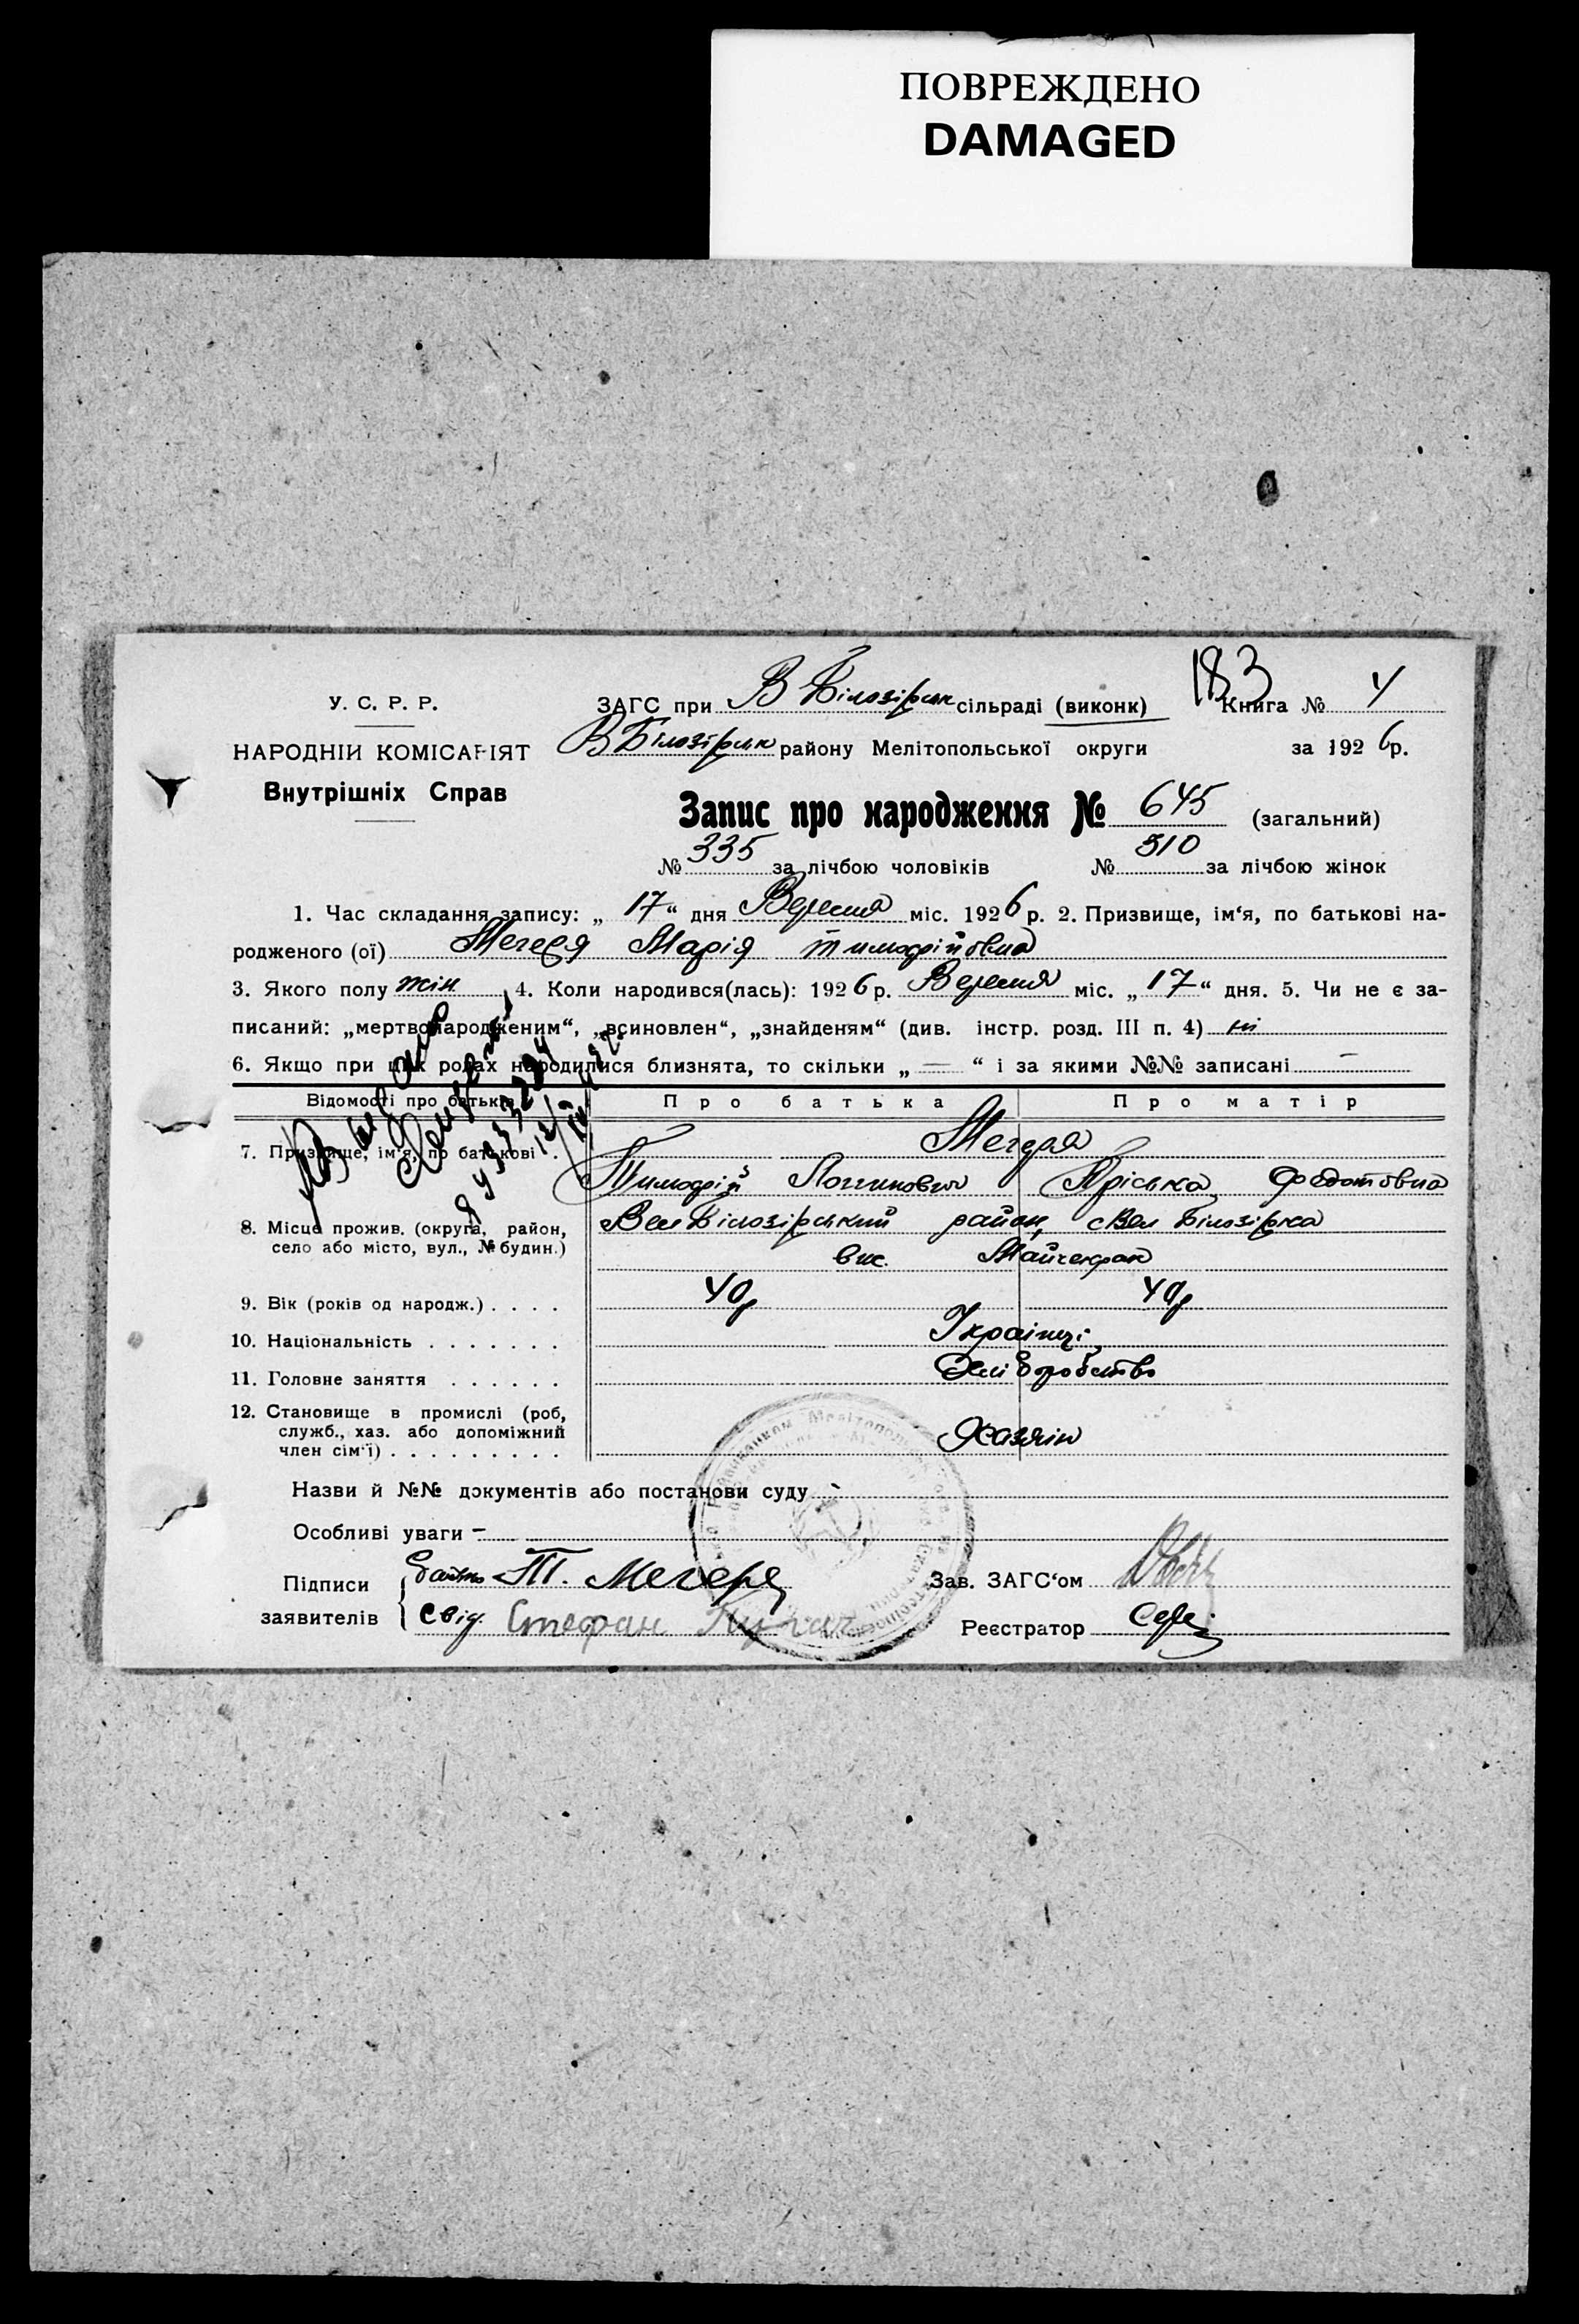 ПОВРЕЖДЕНО
DAMAGED
183
У. С. Р. Р.
ЗАГС при В Білозірськ сільраді (виконк) Книга № 4
НАРОДНІЙ КОМІСАРІЯТ
В Білозірськ району Мелітопольської округи за 1926 р.
Внутрішніх Справ
Запис про народження № 645 (загальний)
№ 335 за лічбою чоловіків № 310 за лічбою жінок
1. Час складання запису: „ 17 “ дня Вересня міс. 1926 р. 2. Призвище, ім‘я, по батькові на-
родженого (ої) Мегеря Марія Тимофійовна
3. Якого полу жін 4. Коли народився(лась): 1926 р. Вересня міс. „ 17 “ дня. 5. Чи не є за-
писаний: „мертвонародженим“, „всиновлен“, „знайденям“ (див. інстр. розд. III п. 4) ні
6. Якщо при цих родах народилися близнята, то скільки „ — “ і за якими №№ записані —
Відомості про батьків Про батька Про матір
7. Призвище, ім‘я, по батькові . Мегеря
Тимофій Логинович Пріська Федотовна
8. Місце прожив. (округа, район, Вел Білозірський район, с Вел Білозірка
село або місто, вул., № будин.) вис.
9. Вік (років од народж.) . . . . 40 р 40 р
10. Національність . . . . . . . Українці
11. Головне заняття . . . . . . Хліборобство
12. Становище в промислі (роб,
служб., хаз. або допоміжний Хазяїн
член сім‘ї) . . . . . . . . .
Назви й №№ документів або постанови суду
Особливі уваги —
Підписи батько Т. Мегеря Зав. ЗАГС‘ом
заявителів свід. Стефан Реєстратор